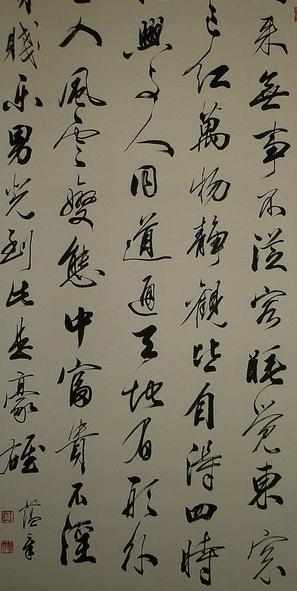 来無事不從容睡覺東窗
已红萬物靜觀皆自得四時
興与人同道通天地有形外
入風雲變態中富貴不淫
賤樂男兒到此是豪雄